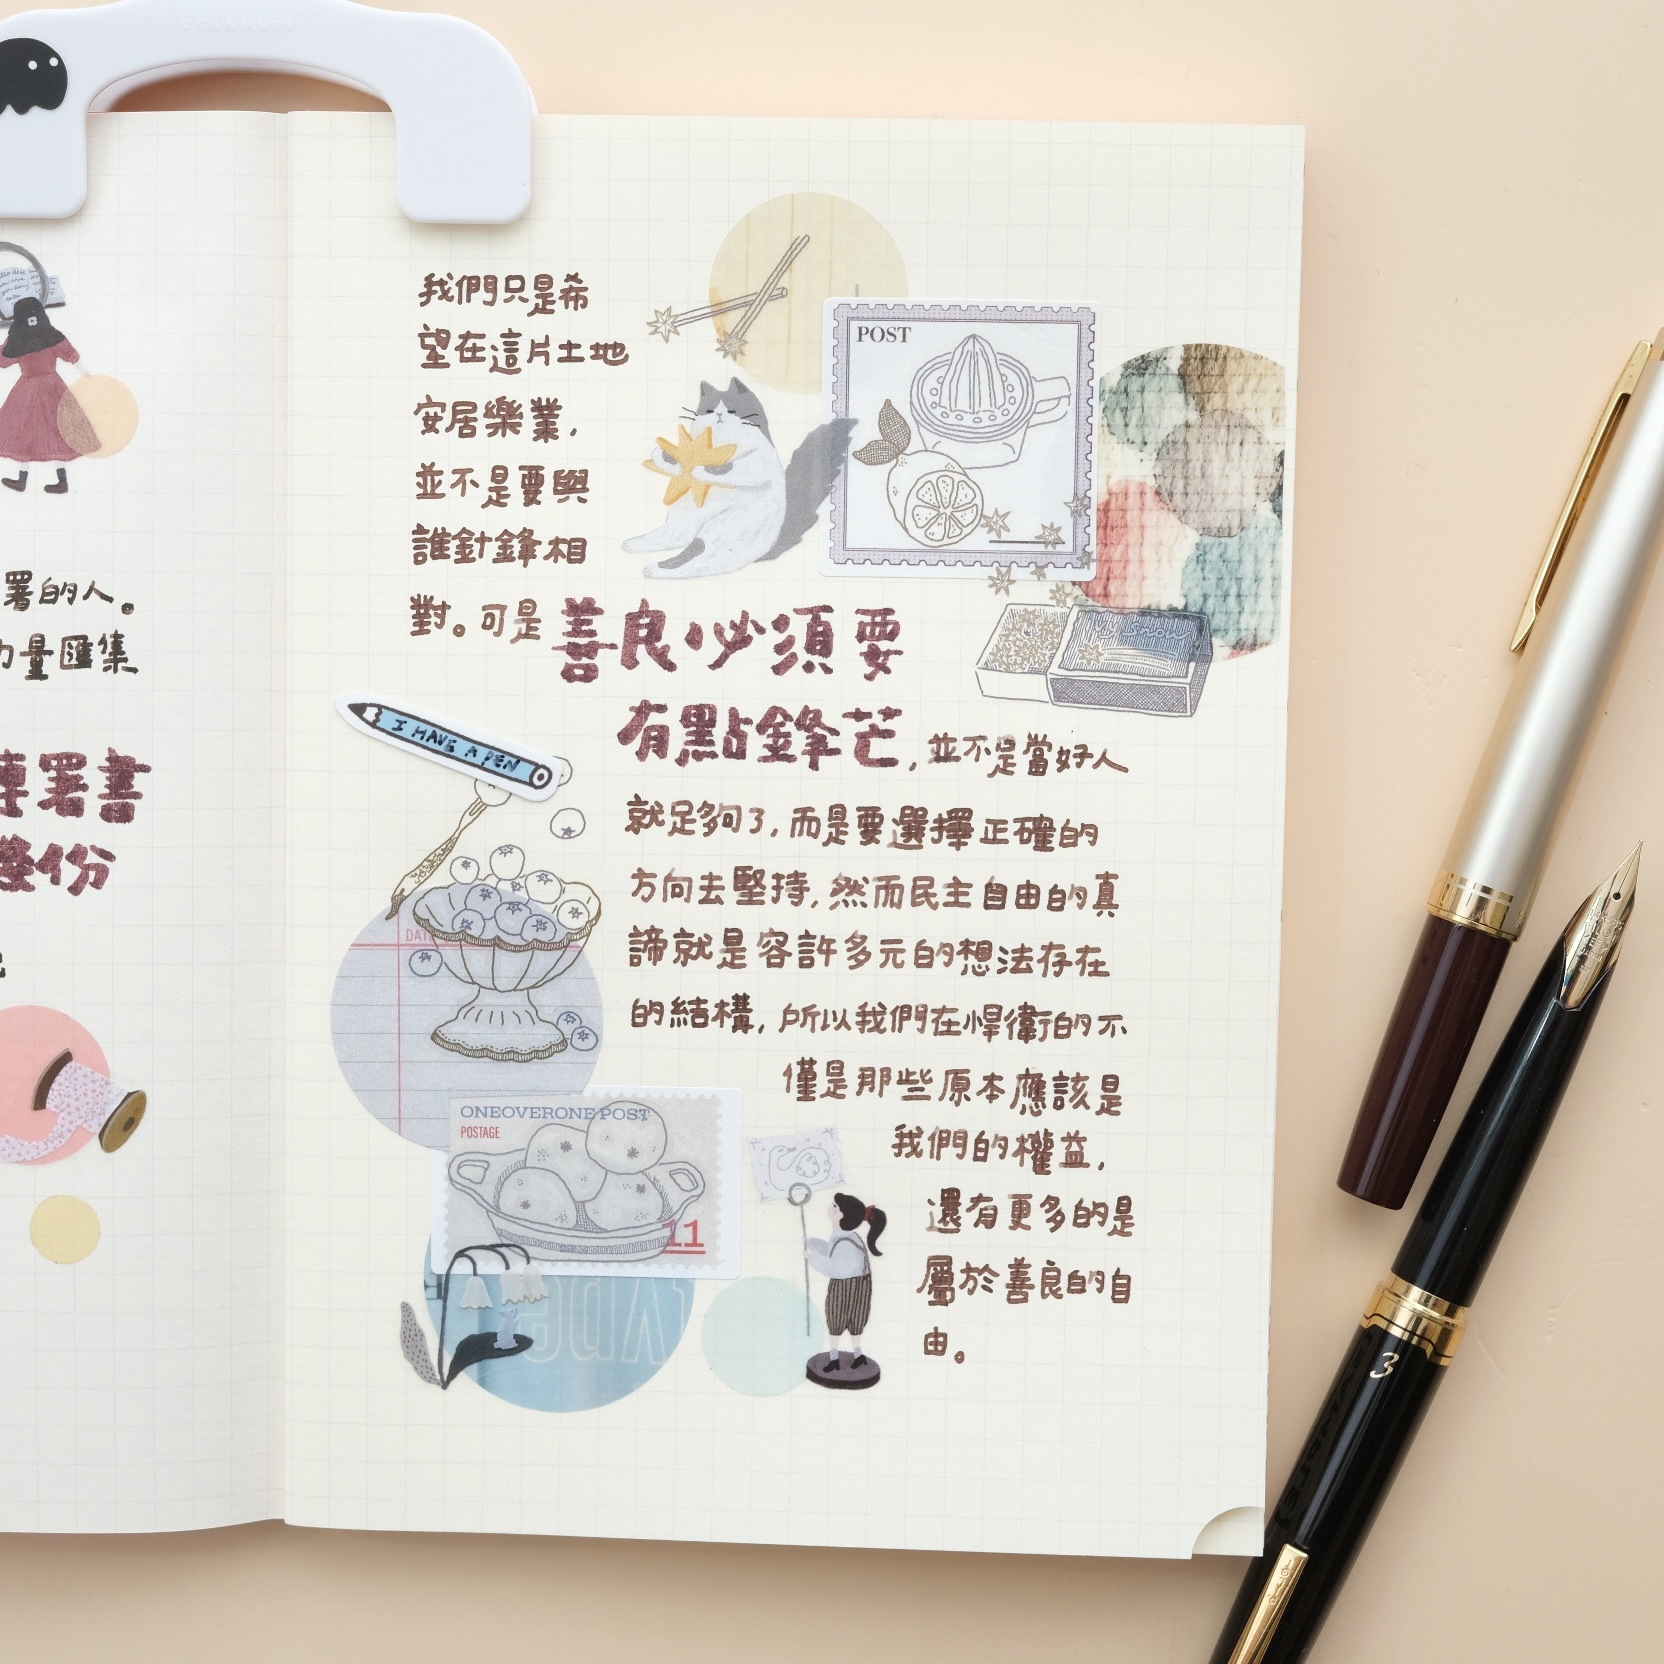 署的人。
力量匯集
連署書
份
我們只是希
望在這片土地
安居樂業，
並不是要與
誰針鋒相
對。可是善良必須要
有點鋒芒，並不是當好人
就足夠了，而是要選擇正確的
方向去堅持，然而民主自由的真
諦就是容許多元的想法存在
的結構，所以我們在悍衛的不
僅是那些原本應該是
我們的權益，
還有更多的是
屬於善良的自
由。
POST
I HAVE A PEN
ONEOVERONE POST
POSTAGE
11
3